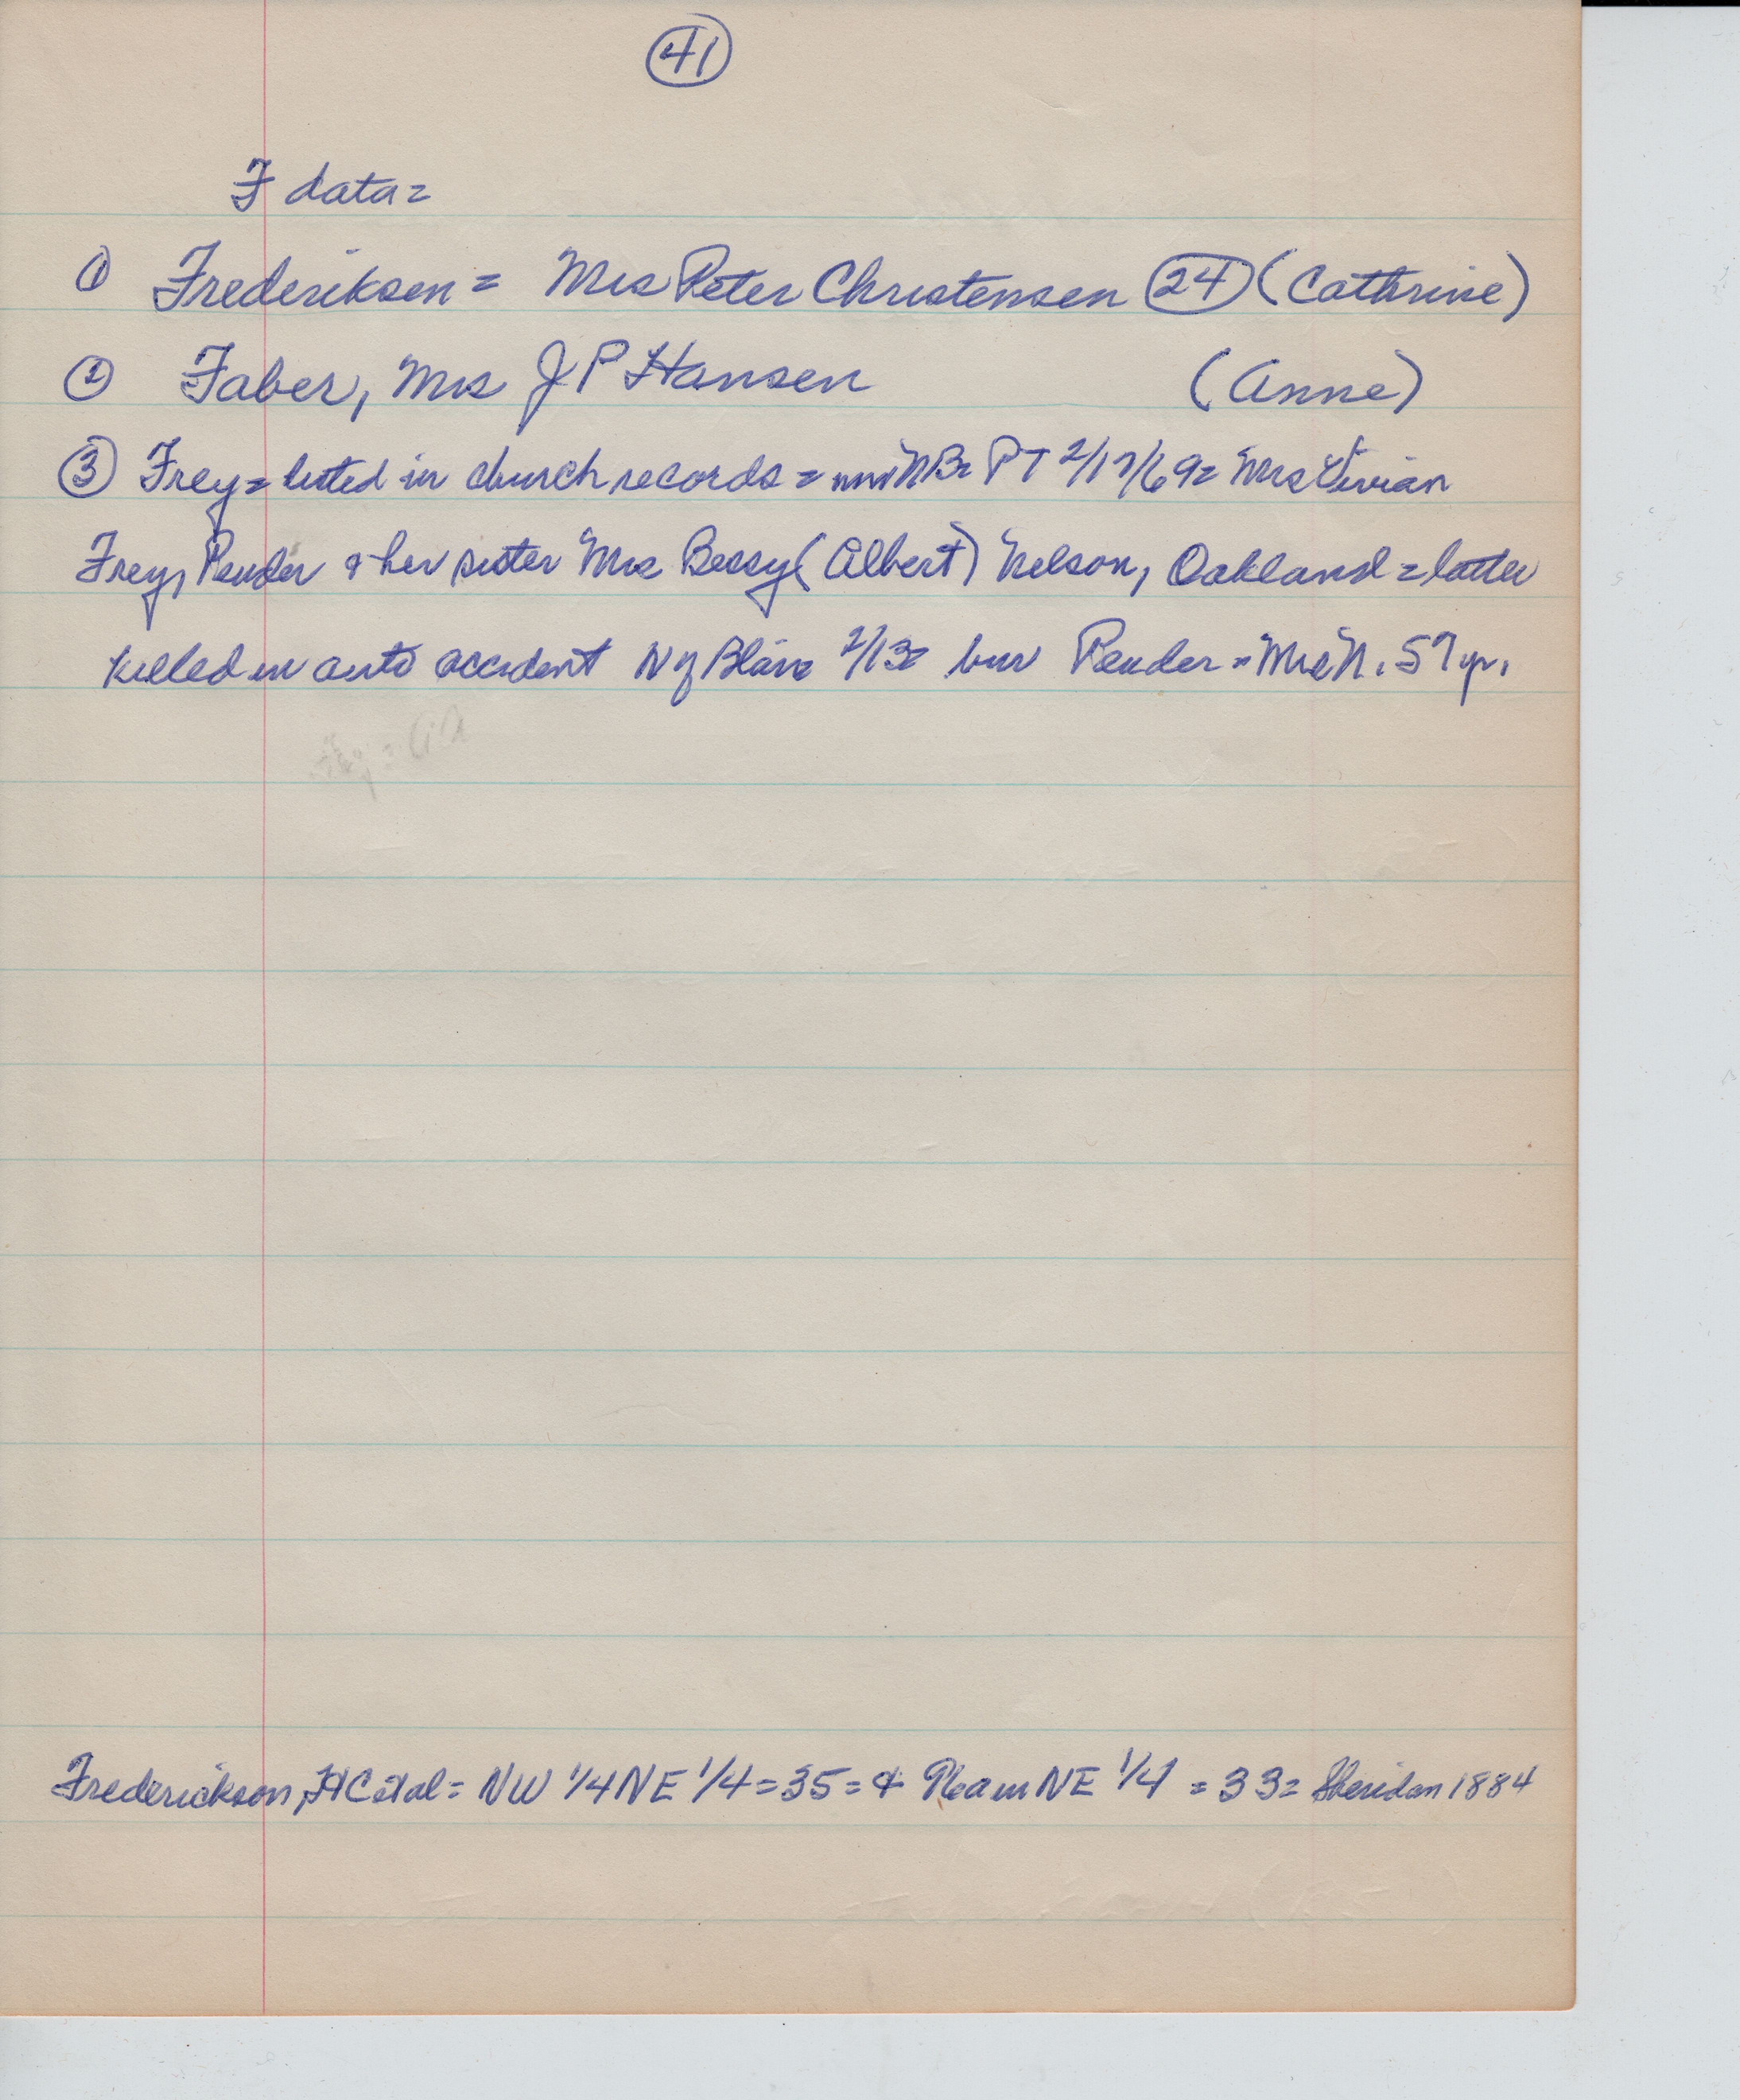 41
F data =
① Frederiksen = Mrs Peter Christensen 24 (Cathrine)
② Faber, Mrs J P Hansen (Anne)
③ Frey = listed in church records = PT 2/17/69 = Mrs Vivian
Frey, Pender & her sister Mrs Bessy (Albert) Nelson, Oakland = latter
killed in auto accident N of Blair 2/13 = bur Pender = Mrs N. 57 yr.
Frederickson, H C et al = NW 1/4 NE 1/4 = 35 = & 96a in NE 1/4 = 33 = Sheridan 1884